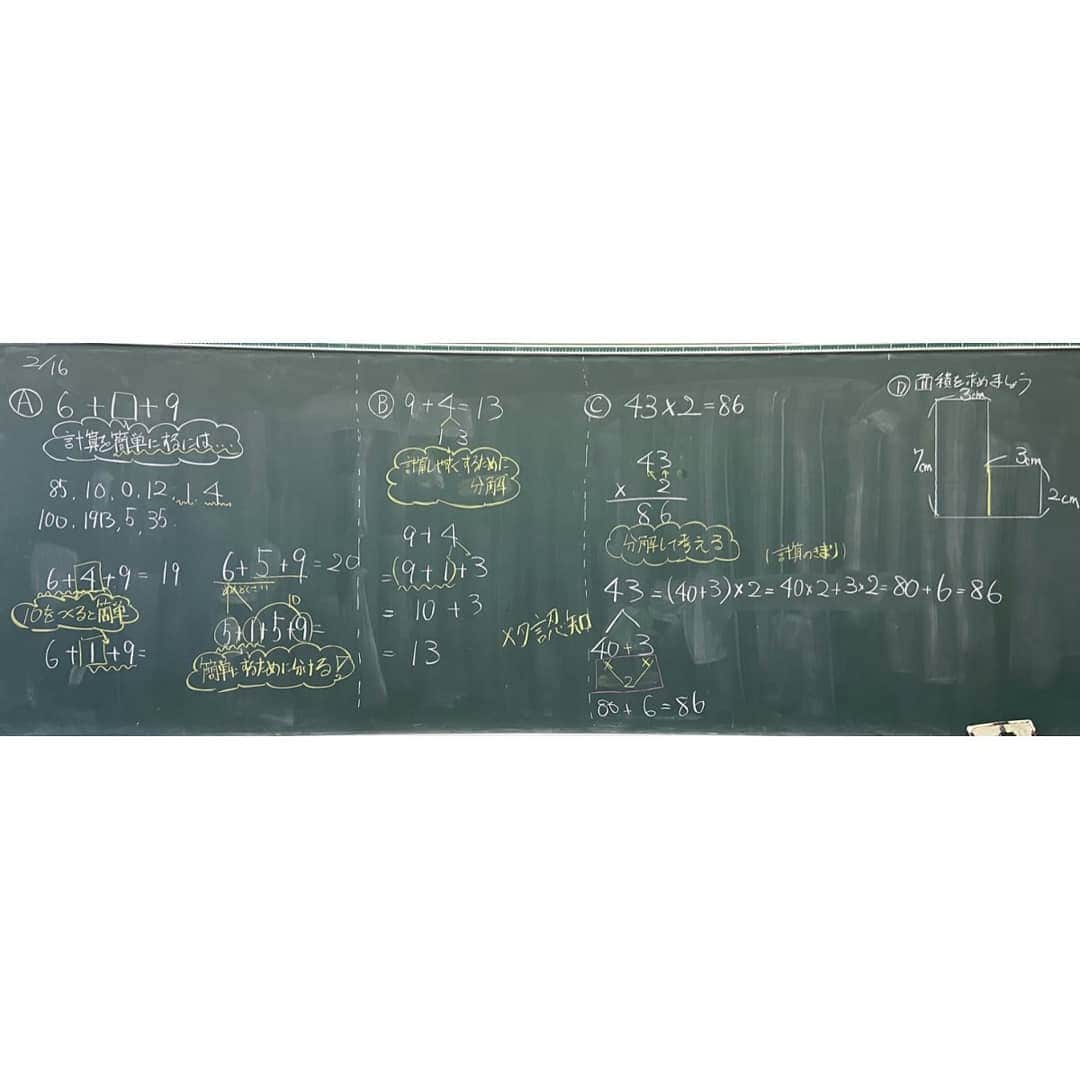 2/16
Ⓐ 6+□+9
計算を簡単にするには…
85.10.0.12.1.4
100.1913.5.35.
6+4+9=19
10をつくると簡単
6+1+9=
6+5+9=20
めんどくさい
10
5+1+5+9=
簡単にするために分ける!
Ⓑ 9+4=13
1 3
計算しやすくするために
分解
9+4
=(9+1)+3
=10+3
=13
メタ認知
Ⓒ 43×2=86
43
×2
86
分解して考える
(計算のきまり)
43=(40+3)×2=40×2+3×2=80+6=86
40+3
× ×
2
80+6=86
Ⓓ 面積を求めましょう
3cm
7cm
3cm
2cm